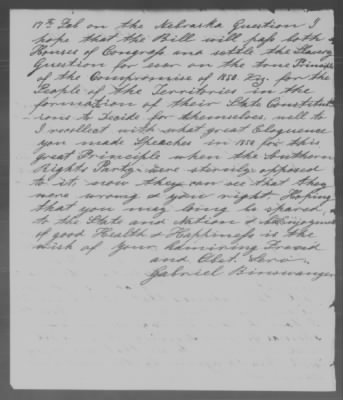 17th Feb on the Nebraska Question I
hope that the Bill will pass both
Houses of Congress and settle the Slavery
Question for ever on the true Principle
of the Compromise of 1850 Viz. for the
People of the Territories in the
formation of their State Constitut-
ions to Decide for themselves. well do
I recollect with what great Eloquence
you made Speaches in 1850 for this
great Principle when the Southern
Rights Party were sternly opposed
to it, now they can see that they
were wrong & you right Hoping
that you may long be spared
to the State and Nation & Enjoyment
of good Health & Happiness is the
wish of your Admiring Friend
and Obet. Serv.
Gabriel Binswanger